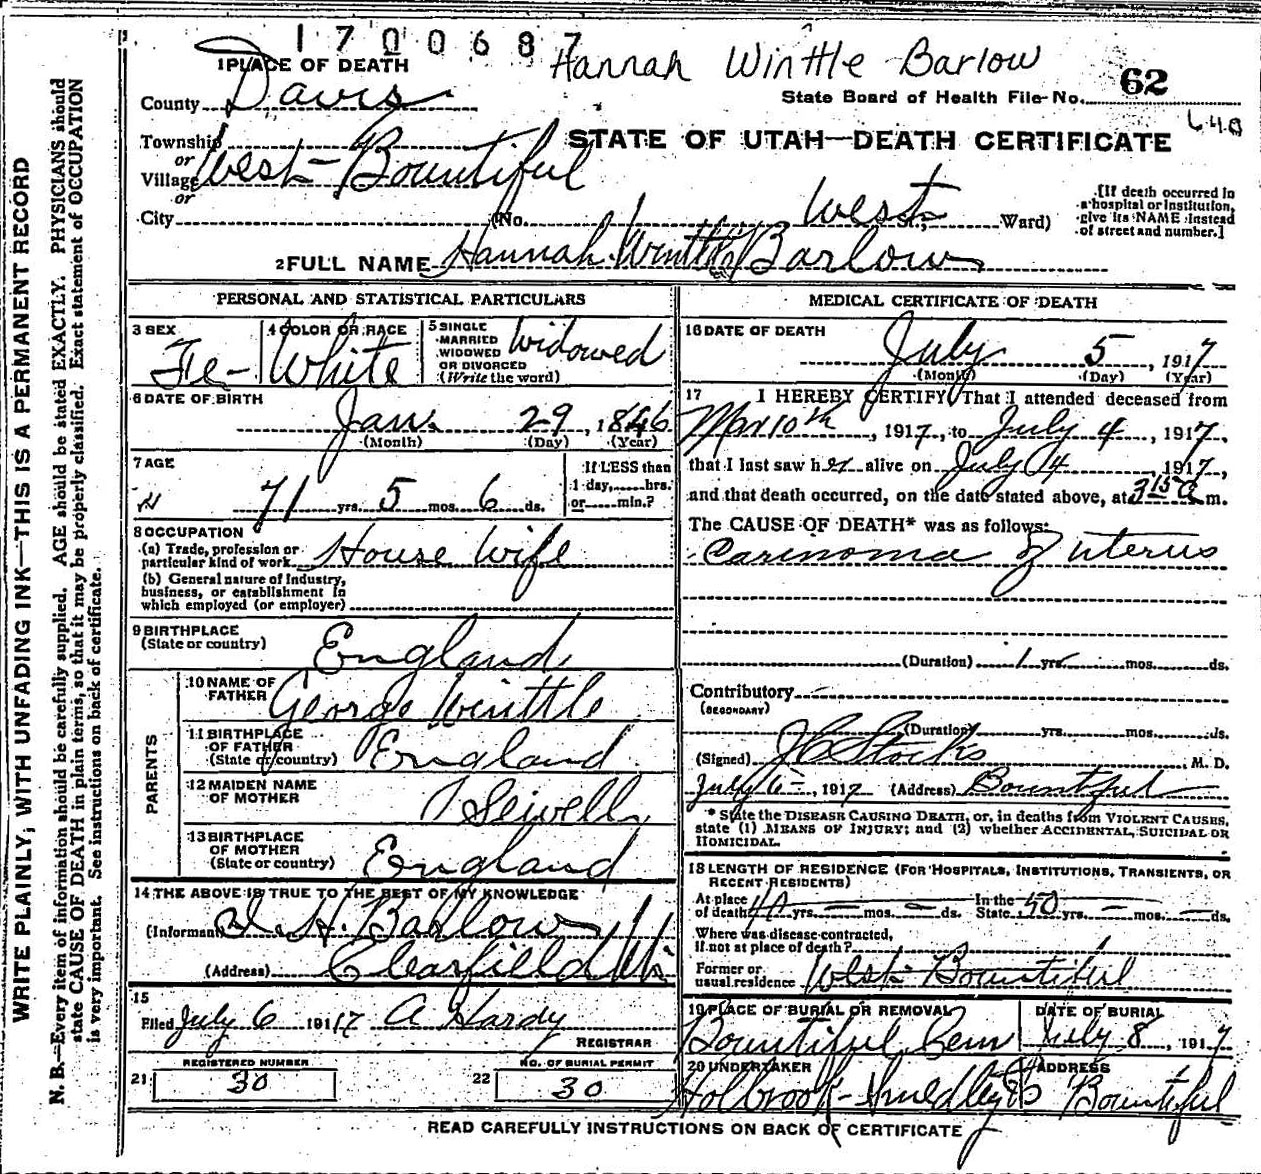 1700687
Hannah Winttle Barlow
1 PLACE OF DEATH
62
County Davis
State Board of Health File No.
Township
STATE OF UTAH—DEATH CERTIFICATE
or
Village West-Bountiful
or
City (No. West St., Ward)
[If death occurred in
a hospital or institution,
give its NAME instead
of street and number.]
2 FULL NAME Hannah Winttle Barlow
PERSONAL AND STATISTICAL PARTICULARS
3 SEX Fe-
4 COLOR OR RACE White
5 SINGLE
MARRIED
WIDOWED
OR DIVORCED
(Write the word)
Widowed
6 DATE OF BIRTH
Jan. 29, 1846
(Month) (Day) (Year)
7 AGE
71 yrs. 5 mos. 6 ds.
If LESS than
1 day, hrs.
or min.?
8 OCCUPATION
(a) Trade, profession or
particular kind of work House Wife
(b) General nature of industry,
business, or establishment in
which employed (or employer)
9 BIRTHPLACE
(State or country) England
PARENTS
10 NAME OF
FATHER George Winttle
11 BIRTHPLACE
OF FATHER
(State or country) England
12 MAIDEN NAME
OF MOTHER Sewell
13 BIRTHPLACE
OF MOTHER
(State or country) England
14 THE ABOVE IS TRUE TO THE BEST OF MY KNOWLEDGE
(Informant) I. H. Barlow
(Address) Clearfield
15
Filed July 6 1917 A Hardy
REGISTRAR
REGISTERED NUMBER
21 30
NO. OF BURIAL PERMIT
22 30
MEDICAL CERTIFICATE OF DEATH
16 DATE OF DEATH
July 5, 1917
(Month) (Day) (Year)
17 I HEREBY CERTIFY, That I attended deceased from
Mar 10th, 1917, to July 4, 1917,
that I last saw her alive on July 4, 1917,
and that death occurred, on the date stated above, at 3 15 a m.
The CAUSE OF DEATH* was as follows:
Carinoma of uterus
(Duration) 1 yrs. mos. ds.
Contributory
(SECONDARY)
(Duration) yrs. mos. ds.
(Signed) J C Stocks M. D.
July 6, 1917 (Address) Bountiful
* State the DISEASE CAUSING DEATH, or, in deaths from VIOLENT CAUSES,
state (1) MEANS OF INJURY; and (2) whether ACCIDENTAL, SUICIDAL OR
HOMICIDAL.
18 LENGTH OF RESIDENCE (FOR HOSPITALS, INSTITUTIONS, TRANSIENTS, OR
RECENT RESIDENTS)
At place In the
of death yrs. mos. ds. State 50 yrs. mos. ds.
Where was disease contracted,
if not at place of death?
Former or
usual residence West Bountiful
19 PLACE OF BURIAL OR REMOVAL
Bountiful Cem
DATE OF BURIAL
July 8, 1917
20 UNDERTAKER
Holbrook-
ADDRESS
Bountiful
READ CAREFULLY INSTRUCTIONS ON BACK OF CERTIFICATE
WRITE PLAINLY, WITH UNFADING INK—THIS IS A PERMANENT RECORD
N. B.—Every item of information should be carefully supplied. AGE should be stated EXACTLY. PHYSICIANS should
state CAUSE OF DEATH in plain terms, so that it may be properly classified. Exact statement of OCCUPATION
is very important. See instructions on back of certificate.